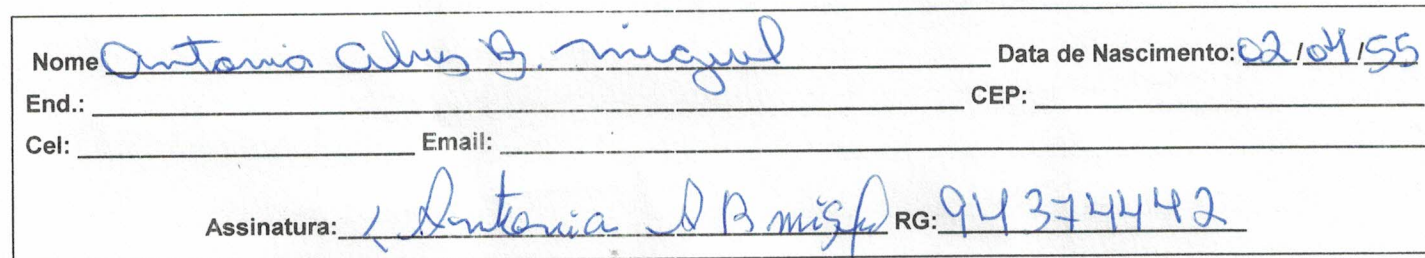 Nome Antonia Alves B. Miguel Data de Nascimento: 02/04/55
End.: CEP:
Cel: Email:
Assinatura: Antonia A B Miguel RG: 94374442